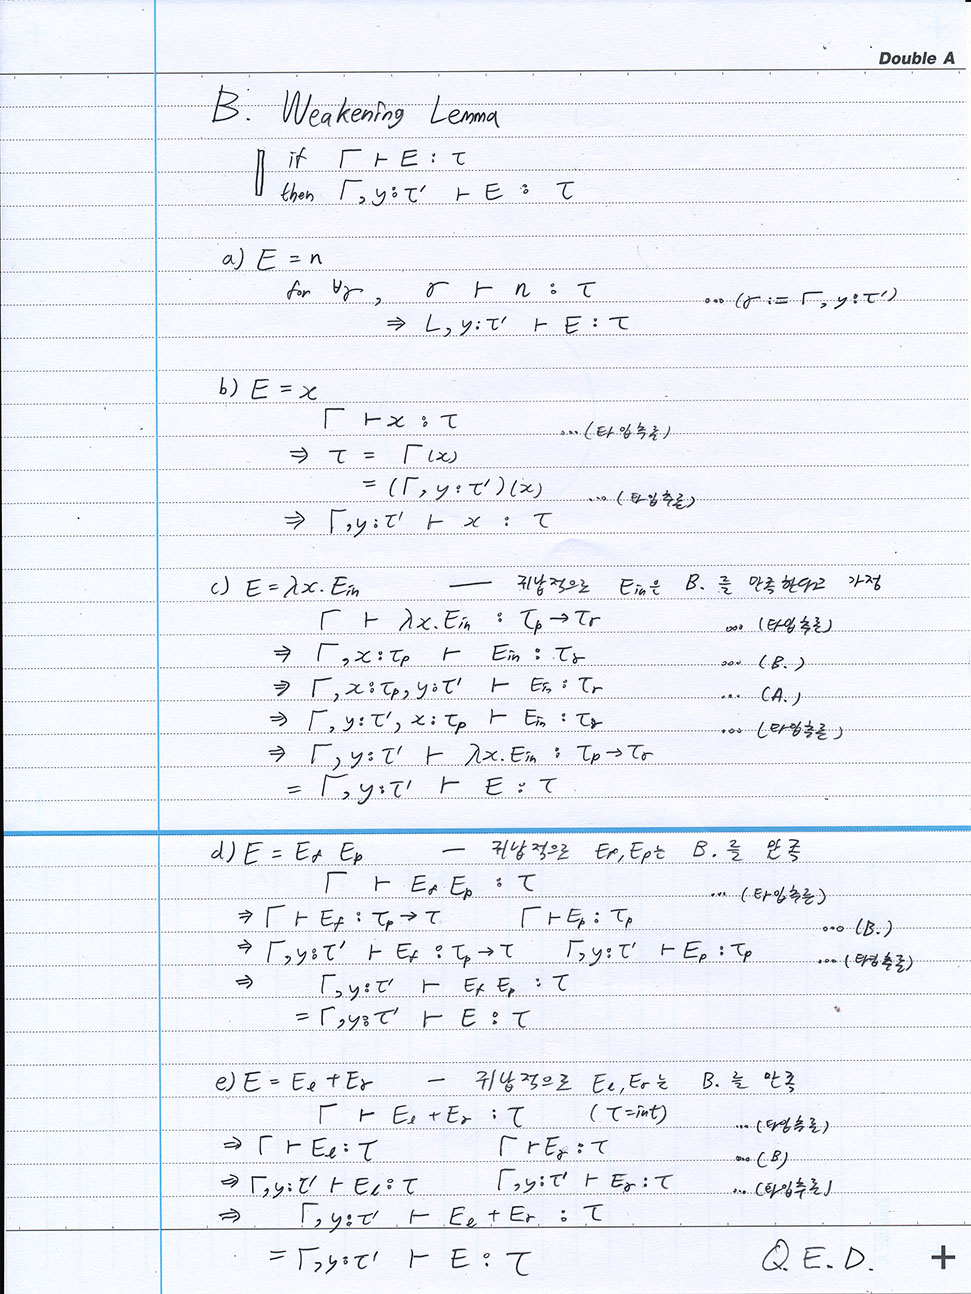 Double A
B. Weakening Lemma
if Γ ⊢ E : τ
then Γ, y:τ' ⊢ E : τ
a) E = n
for ∀γ, γ ⊢ n : τ ...(γ := Γ, y:τ')
⇒ Γ, y:τ' ⊢ E : τ
b) E = x
Γ ⊢ x : τ ...(타입추론)
⇒ τ = Γ(x)
= (Γ, y:τ')(x) ...(타입추론)
⇒ Γ, y:τ' ⊢ x : τ
c) E = λx.Ein — 귀납적으로 Ein은 B. 를 만족한다고 가정
Γ ⊢ λx.Ein : τp → τr ...(타입추론)
⇒ Γ, x:τp ⊢ Ein : τr ...(B.)
⇒ Γ, x:τp, y:τ' ⊢ Ein : τr ...(A.)
⇒ Γ, y:τ', x:τp ⊢ Ein : τr ...(타입추론)
⇒ Γ, y:τ' ⊢ λx.Ein : τp → τr
= Γ, y:τ' ⊢ E : τ
d) E = Ef Ep — 귀납적으로 Ef, Ep는 B. 를 만족
Γ ⊢ Ef Ep : τ ...(타입추론)
⇒ Γ ⊢ Ef : τp → τ Γ ⊢ Ep : τp ...(B.)
⇒ Γ, y:τ' ⊢ Ef : τp → τ Γ, y:τ' ⊢ Ep : τp ...(타입추론)
⇒ Γ, y:τ' ⊢ Ef Ep : τ
= Γ, y:τ' ⊢ E : τ
e) E = El + Er — 귀납적으로 El, Er는 B. 를 만족
Γ ⊢ El + Er : τ (τ=int) ...(타입추론)
⇒ Γ ⊢ El : τ Γ ⊢ Er : τ ...(B)
⇒ Γ, y:τ' ⊢ El : τ Γ, y:τ' ⊢ Er : τ ...(타입추론)
⇒ Γ, y:τ' ⊢ El + Er : τ
= Γ, y:τ' ⊢ E : τ Q.E.D.